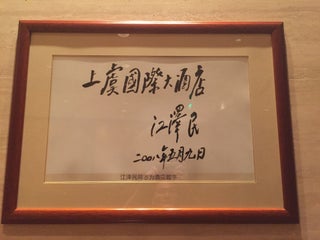 上虞國際大酒店
江澤民
二00八年五月九日
江泽民同志为酒店题字